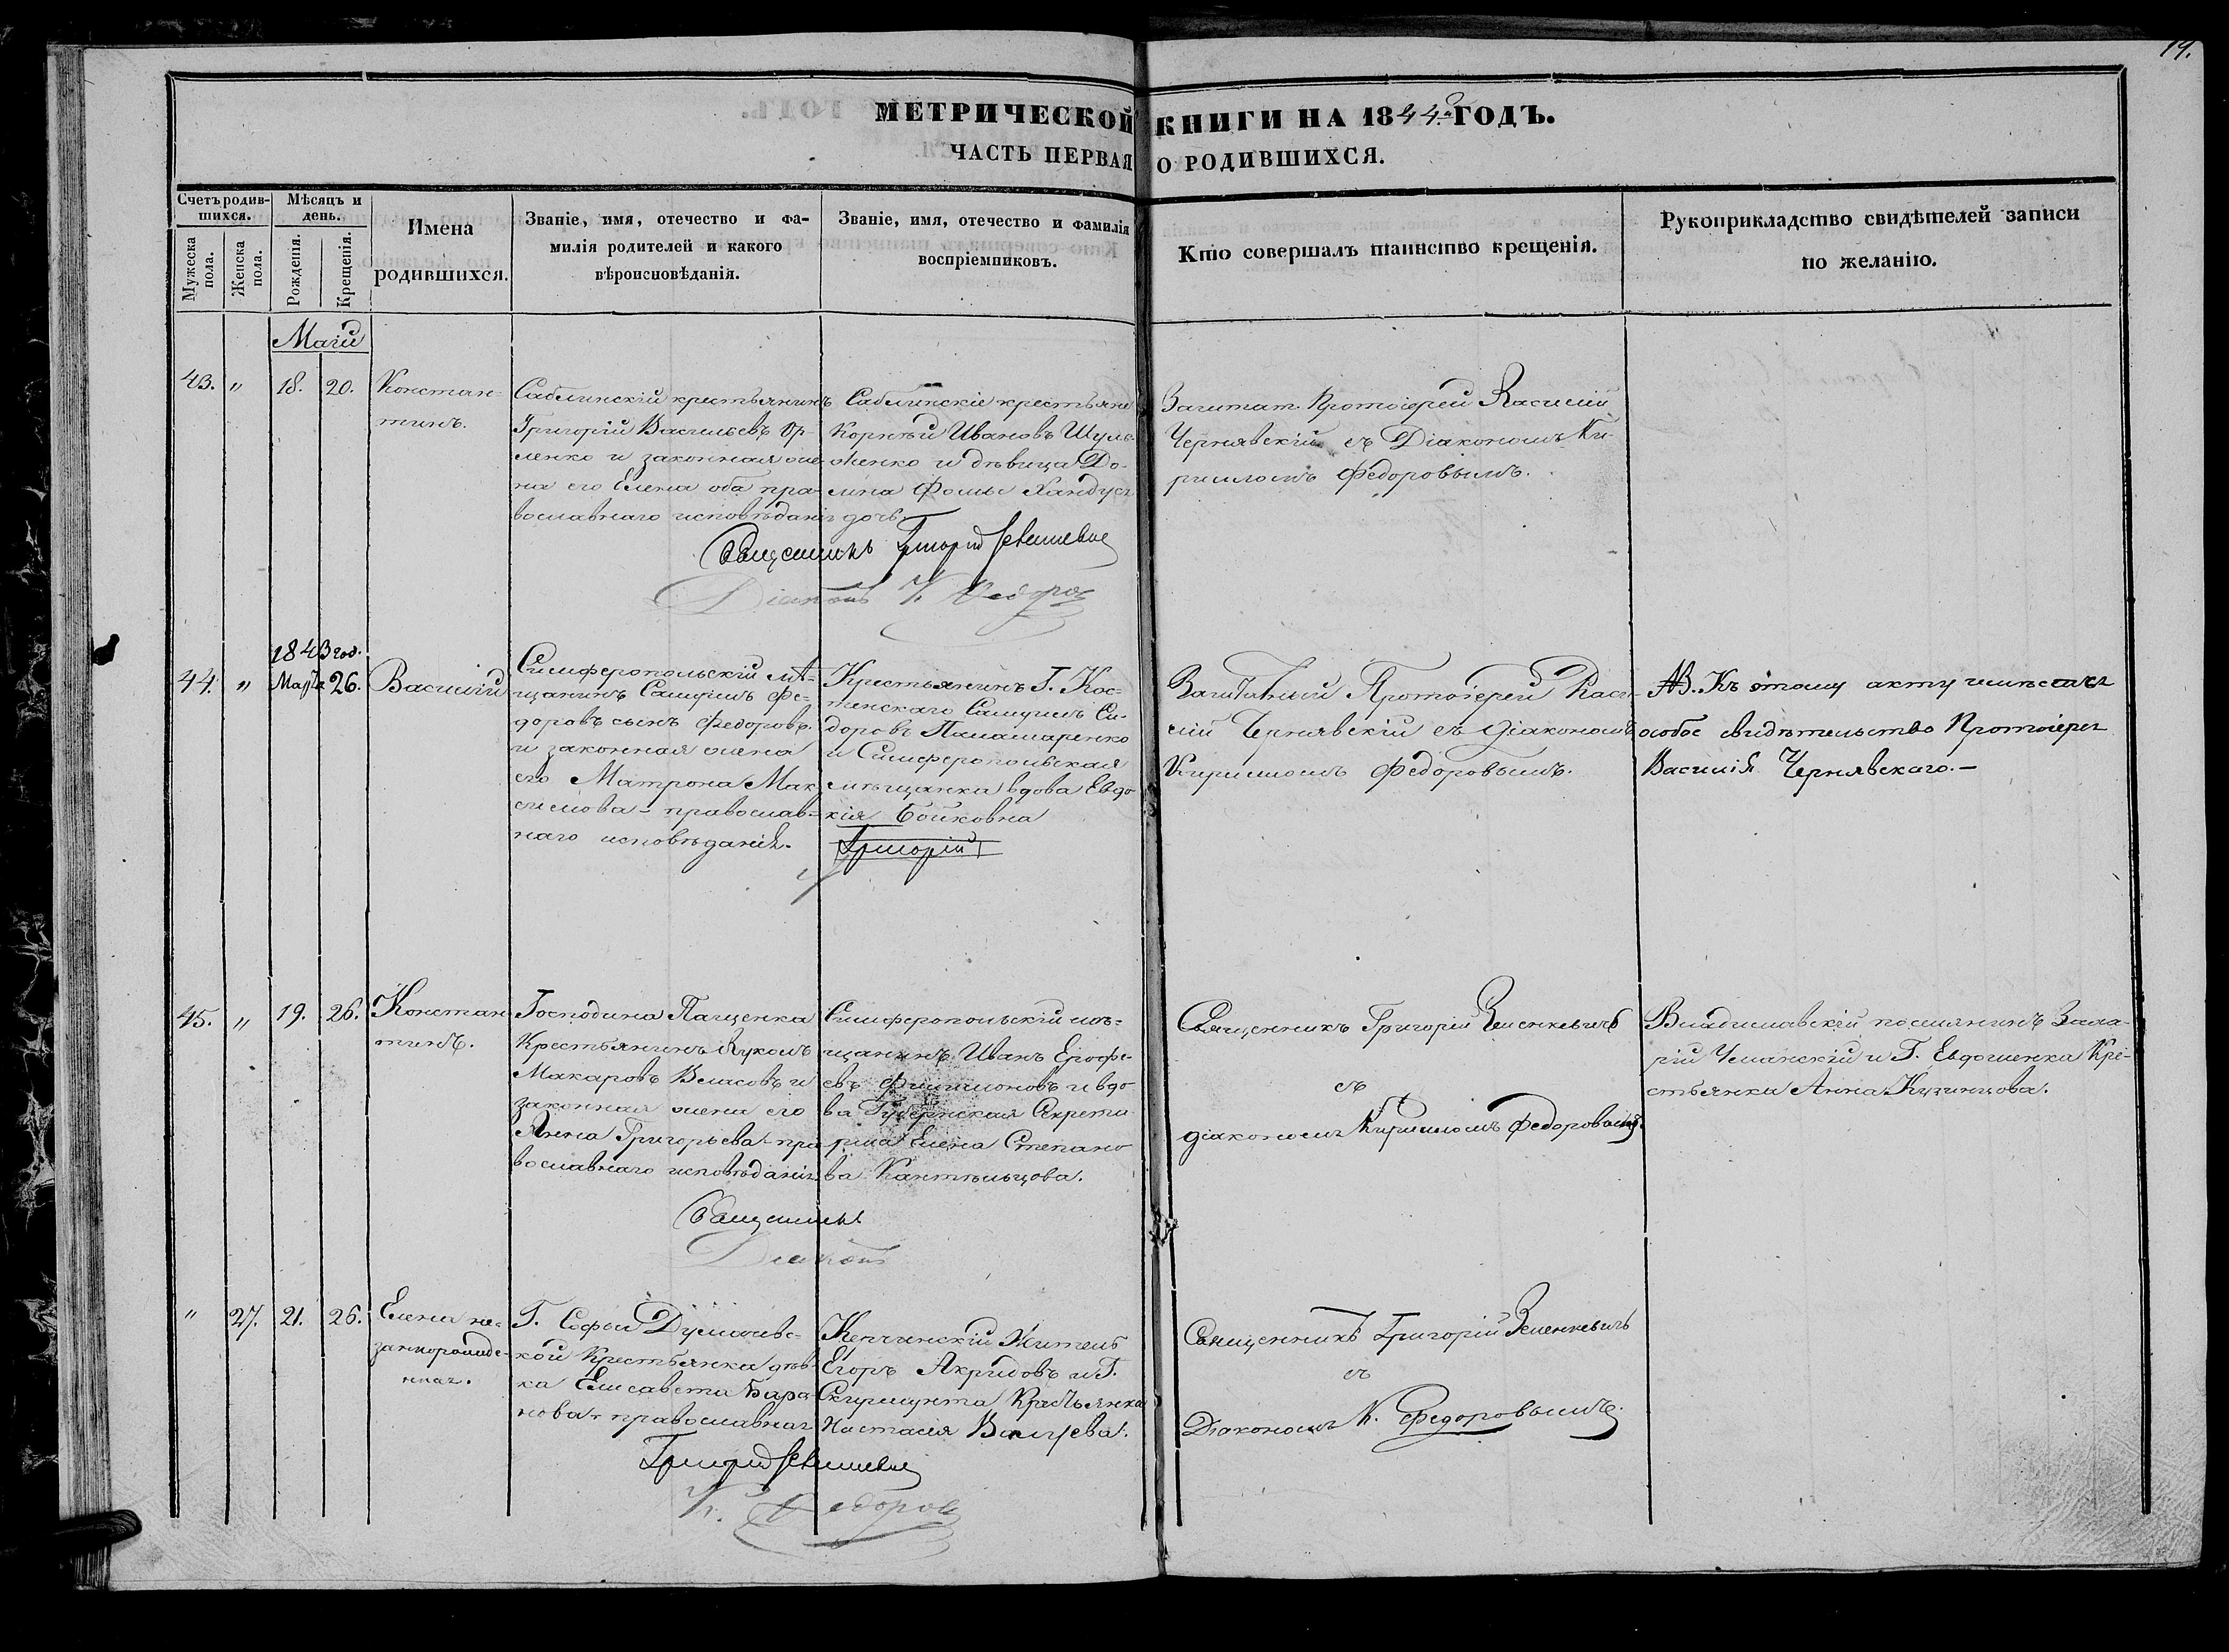 19.
МЕТРИЧЕСКОЙ КНИГИ НА 1844 ГОДЪ.
ЧАСТЬ ПЕРВАЯ О РОДИВШИХСЯ.
Счетъ родив-
шихся.
Мужеска
пола.
Женска
пола.
Мѣсяцъ и
день.
Рожденія.
Крещенія.
Имена
родившихся.
Званіе, имя, отечество и фа-
милія родителей и какого
вѣроисповѣданія.
Званіе, имя, отечество и фамилія
воспріемниковъ.
Кто совершалъ таинство крещенія.
Рукоприкладство свидѣтелей записи
по желанію.
Маій
43. " 18. 20.
Констан-
тинъ.
Саблинскій крестьянинъ
Григорій Васильевъ Ор-
ленко и законная же-
на его Елена оба пра-
вославнаго исповѣданія
Саблинскіе крестьяне
Корнѣй Ивановъ Шуль-
женко и дѣвица До-
мна Фомы Хандуся
дочь.
Заштат. Протоіерей Василій
Чернявскій съ Діакономъ Ки-
рилломъ Федоровымъ.
Священникъ Григорій
Діаконъ К. Федоровъ
1843 год.
44. " 26.
Василій
Симферопольскій мѣ-
щанинъ Самуилъ Фе-
доровъ сынъ Федоровъ
и законная жена
его Матрона Мак-
симова - православ-
наго исповѣданія.
Крестьянинъ Г. Кос-
тенскаго Самуилъ Си-
доровъ Панамаренко
и Симферопольская
мѣщанка вдова Евдо-
кія Бойковна
Григорій
Заштатный Протоіерей Васи-
лій Чернявскій съ Діакономъ
Кирилломъ Федоровымъ.
NB. Къ этому акту
особое свидѣтельство Протоіерея
Василія Чернявскаго.-
45. " 19. 26.
Констан
тинъ.
Господина Пащенка
Крестьянинъ
Макаровъ Власовъ и
законная жена его
Анна Григорьева - пра
вославнаго исповѣданія.
Симферопольскій мѣ-
щанинъ Иванъ Ерофе-
евъ Филимоновъ и вдо
ва Губернская Секрета
рша Елена Степано
ва Кантѣльцова.
Священникъ Григорій Зененкевичъ
съ
діакономъ Кирилломъ Федоровымъ.
Владиславскій поселянинъ Заха-
рій Чеманскій и Г. Евдошенка Кре-
стьянка Анна
Священникъ
Діаконъ
" 27. 21. 26.
Елена не-
законорожде-
нная.
Г. Софіи
кой Крестьянка дѣв-
ка Елисавета Бара-
нова - православная
Житель
Егоръ Акридовъ и Г.
Скирмунта Крестьянка
Настасія
Священникъ Григорій Зененкевичъ
съ
Діакономъ К. Федоровымъ.
Григорій
К. Федоровъ